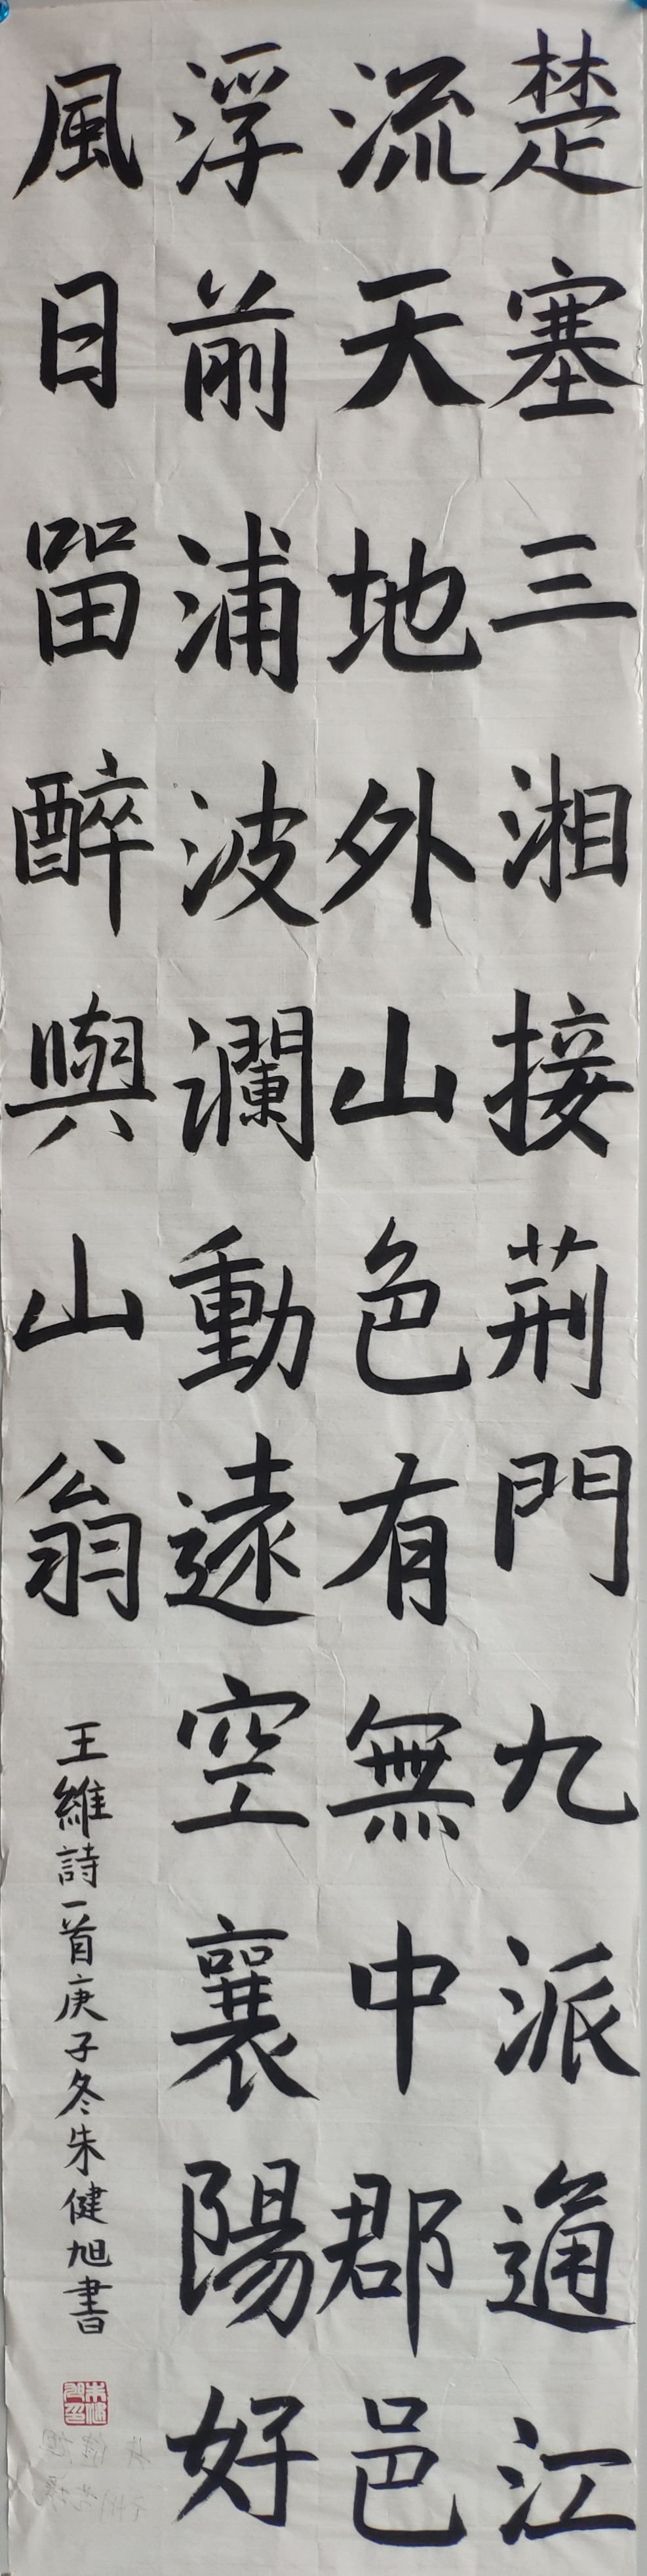 楚塞三湘接荆門九派通江
流天地外山色有無中郡邑
浮前浦波瀾動遠空襄陽好
風日留醉與山翁
王維詩一首庚子冬朱健旭書